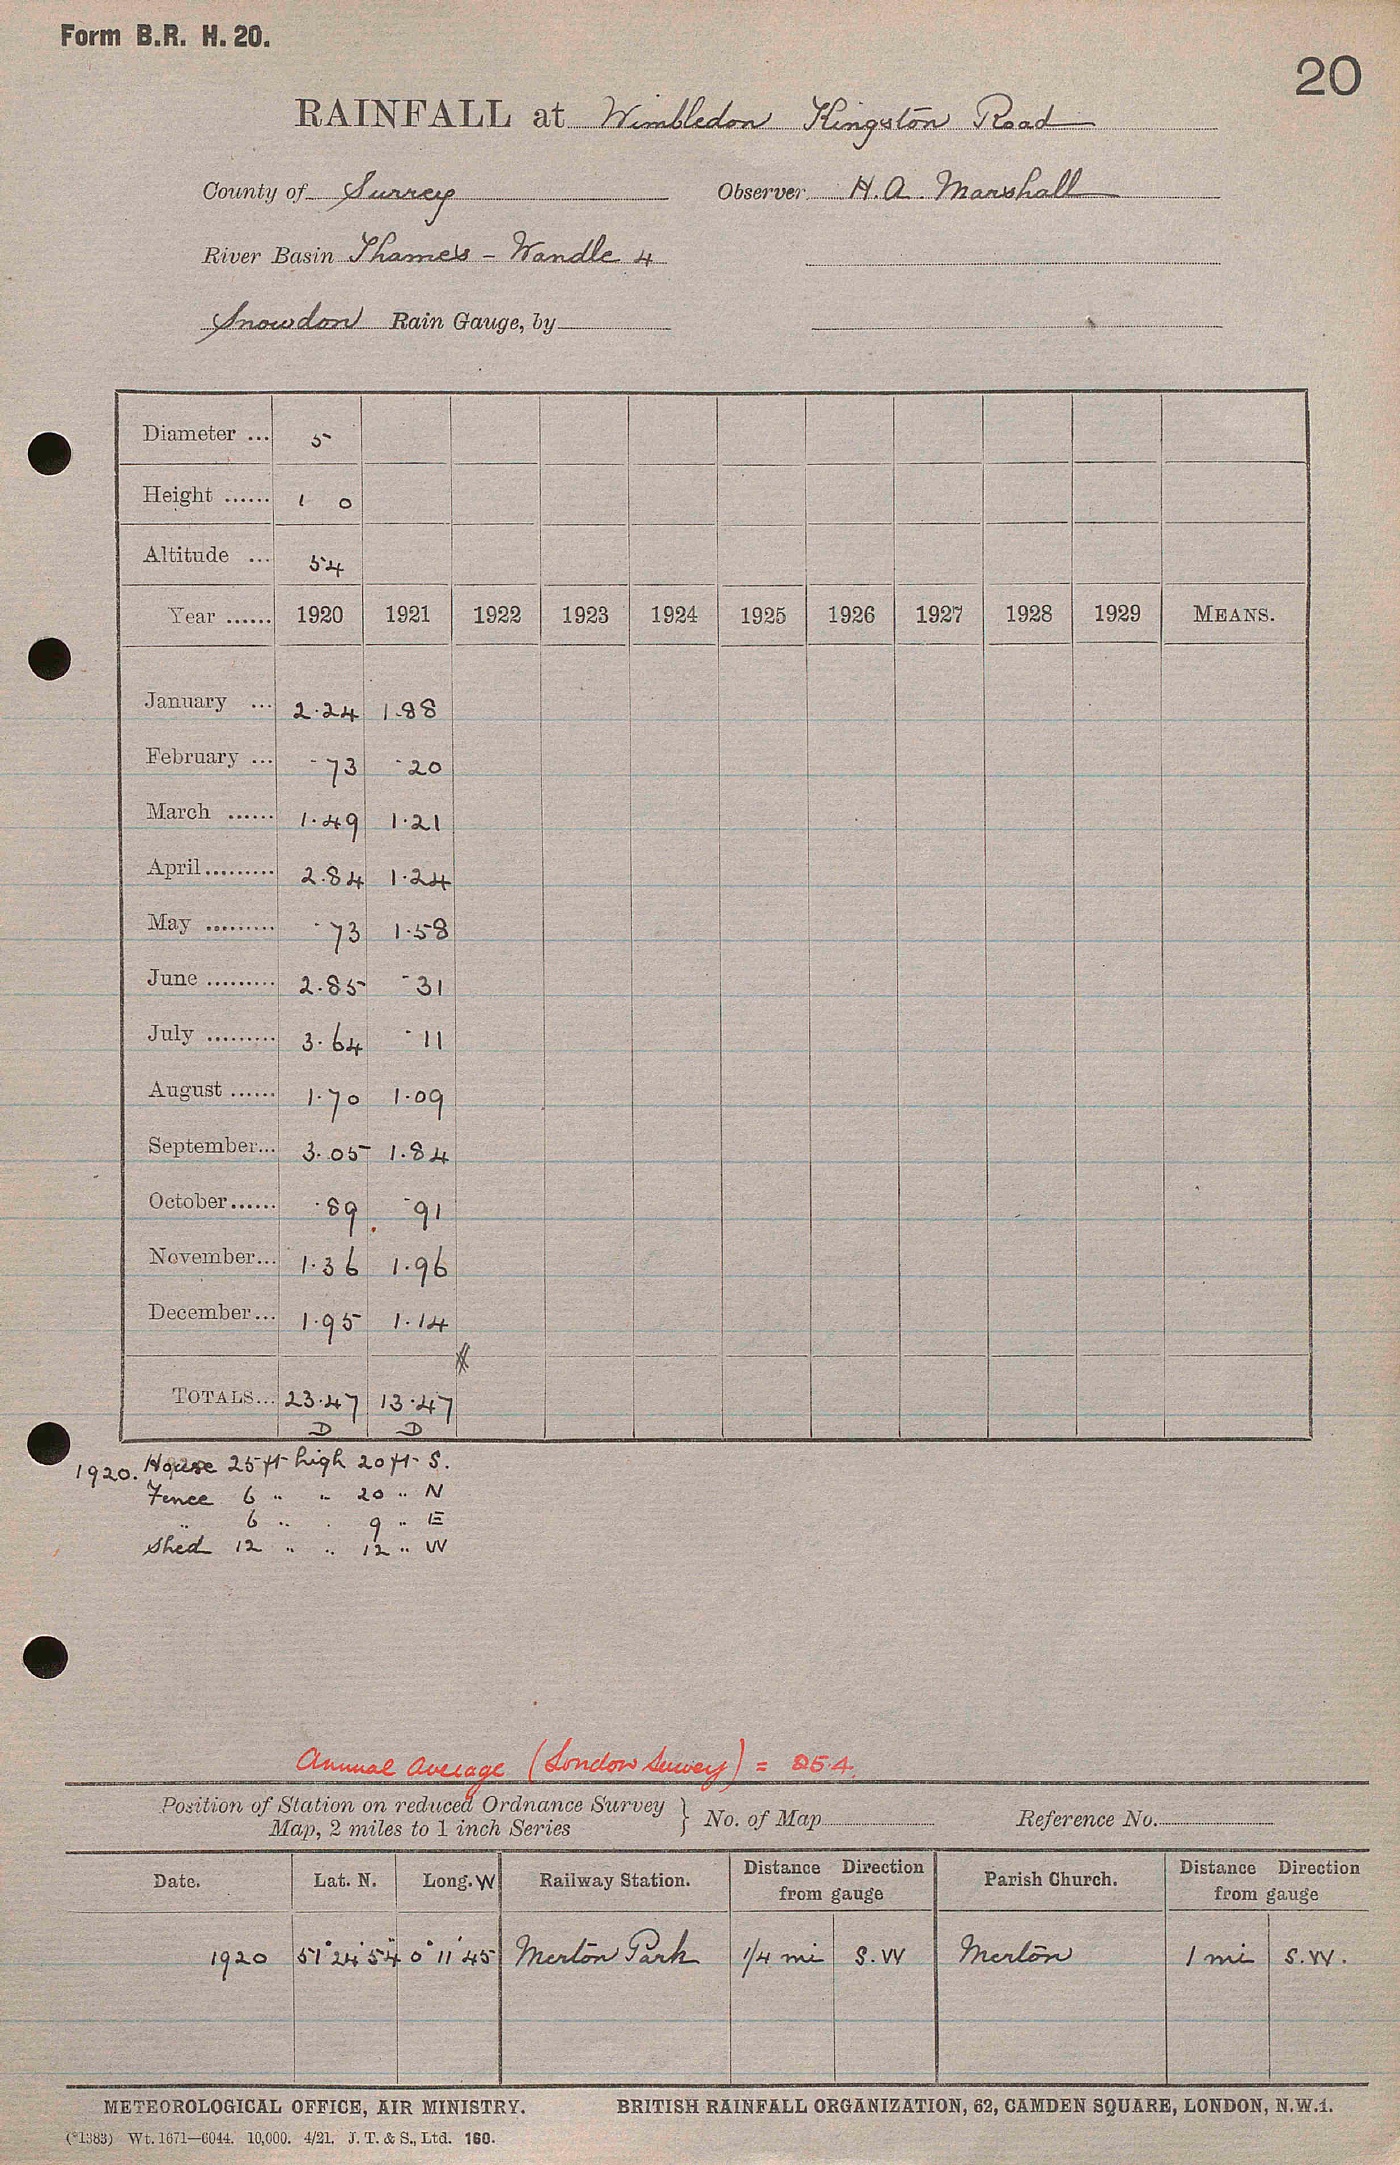 Form B.R. H. 20.
20
RAINFALL at Wimbledon Kingston Road
County of Surrey Observer H. A. Marshall
River Basin Thames - Wandle 4
Snowdon Rain Gauge, by
Diameter ... 5
Height ...... 1 0
Altitude ... 54
Year ...... 1920 1921 1922 1923 1924 1925 1926 1927 1928 1929 MEANS.
January ... 2.24 1.88
February ... .73 .20
March ...... 1.49 1.21
April ......... 2.84 1.24
May ......... .73 1.58
June ......... 2.85 .31
July ......... 3.64 .11
August ...... 1.70 1.09
September... 3.05 1.84
October...... .89 .91
November... 1.36 1.96
December... 1.95 1.14
TOTALS... 23.47 13.47
D D
1920. House 25 ft high 20 ft S.
Fence 6 " " 20 " N
" 6 " " 9 " E
Shed 12 " " 12 " W
Annual Average (London Survey) = 25.4.
Position of Station on reduced Ordnance Survey
Map, 2 miles to 1 inch Series } No. of Map Reference No.
Date. Lat. N. Long. W Railway Station. Distance Direction from gauge Parish Church. Distance Direction from gauge
1920 51° 24' 54" 0° 11' 45 Merton Park 1/4 mi S.W Merton 1 mi S.W.
METEOROLOGICAL OFFICE, AIR MINISTRY. BRITISH RAINFALL ORGANIZATION, 62, CAMDEN SQUARE, LONDON, N.W.1.
(*1383) Wt. 1671—6044. 10,000. 4/21. J. T. & S., Ltd. 160.